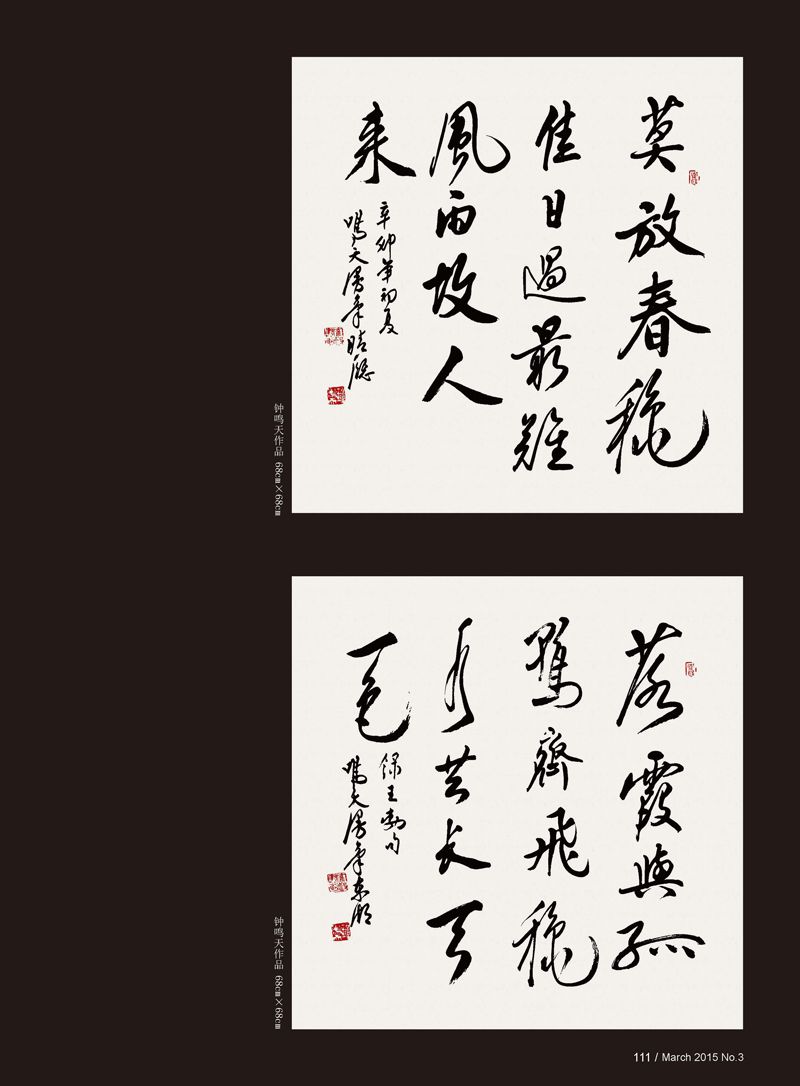 莫放春穐
佳日過最難
風雨故人
来
辛卯年初夏
鳴天漫筆
钟鸣天作品 68cm×68cm
落霞與孤
鶩齊飛穐
水共长天
一色
録王勃句
鳴天漫筆
钟鸣天作品 68cm×68cm
111 / March 2015 No.3